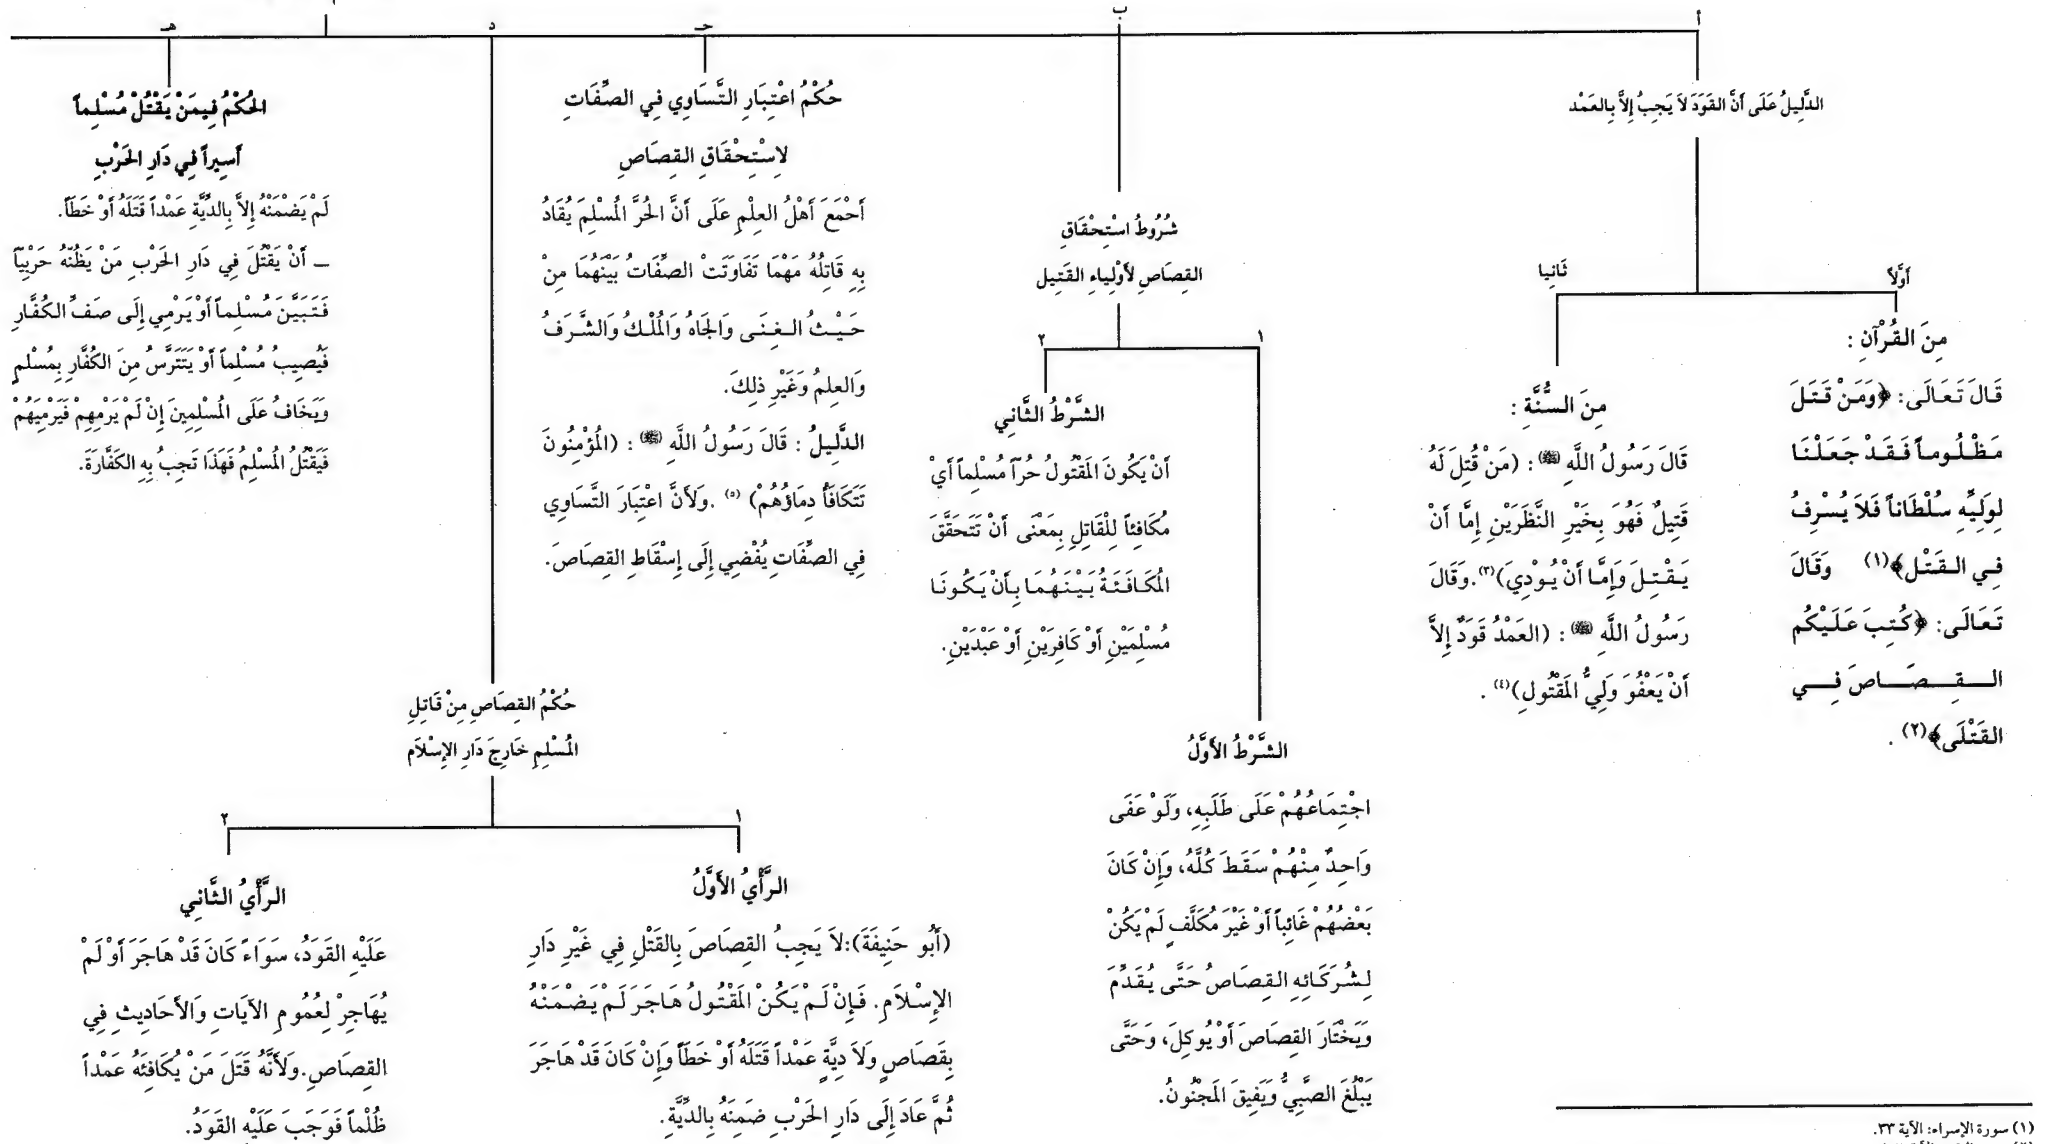 أ
الدَّلِيلُ عَلَى أَنَّ القَوَدَ لاَ يَجِبُ إِلاَّ بِالعَمْد
أَوَّلاً
مِنَ القُرْآنِ :
قَالَ تَعَالَى: ﴿وَمَنْ قَتَلَ
مَظْلُوماً فَقَدْ جَعَلْنَا
لِوَلِيِّهِ سُلْطَاناً فَلاَ يُسْرِفُ
فِي القَتْل﴾(١) وَقَالَ
تَعَالَى: ﴿كُتِبَ عَلَيْكُم
القِصَاصَ فِي
القَتْلَى﴾(٢) .
ثَانِيا
مِنَ السُّنَّةِ :
قَالَ رَسُولُ اللَّهِ ﷺ : (مَنْ قُتِلَ لَهُ
قَتِيلٌ فَهُوَ بِخَيْرِ النَّظَرَيْنِ إِمَّا أَنْ
يَقْتِلَ وَإِمَّا أَنْ يُوْدِيَ)(٣).وَقَالَ
رَسُولُ اللَّهِ ﷺ : (العَمْدُ قَوَدٌ إِلاَّ
أَنْ يَعْفُوَ وَلِيُّ المَقْتُولِ)(٤) .
ب
شُرُوطُ اسْتِحْقَاقِ
القِصَاصِ لأَوْلِياءِ القَتِيل
١
الشَّرْطُ الأَوَّلُ
اجْتِمَاعُهُمْ عَلَى طَلَبِهِ، وَلَوْ عَفَى
وَاحِدٌ مِنْهُمْ سَقَطَ كُلَّهُ، وَإِنْ كَانَ
بَعْضُهُمْ غَائِباً أَوْ غَيْرَ مُكَلَّفٍ لَمْ يَكُنْ
لِشُرَكَائِهِ القِصَاصُ حَتَّى يُقَدَّمَ
وَيَخْتَارَ القِصَاصَ أَوْ يُوكِلَ، وَحَتَّى
يَبْلُغَ الصَّبِيُّ وَيَفِيقَ المَجْنُونُ.
٢
الشَّرْطُ الثَّانِي
أَنْ يَكُونَ المَقْتُولُ حُرّاً مُسْلِماً أَيْ
مُكَافِئاً لِلْقَاتِلِ بِمَعْنَى أَنْ تَتَحَقَّقَ
المُكَافَئَةُ بَيْنَهُمَا بِأَنْ يَكُونَا
مُسْلِمَيْنِ أَوْ كَافِرَيْنِ أَوْ عَبْدَيْنِ.
حـ
حُكْمُ اعْتِبَارِ التَّسَاوِي فِي الصِّفَاتِ
لاِسْتِحْقَاقِ القِصَاصِ
أَحْمَعَ أَهْلُ العِلْمِ عَلَى أَنَّ الحُرَّ المُسْلِمَ يُقَادُ
بِهِ قَاتِلُهُ مَهْمَا تَفَاوَتَتْ الصِّفَاتُ بَيْنَهُمَا مِنْ
حَيْثُ الغِنَى وَالجَاهُ وَالمُلْكُ وَالشَّرَفُ
وَالعِلمُ وَغَيْرِ ذلِكَ.
الدَّلِيلُ : قَالَ رَسُولُ اللَّهِ ﷺ : (المُؤْمِنُونَ
تَتَكَافَأُ دِمَاؤُهُمْ) (٥) .وَلأَنَّ اعْتِبَارَ التَّسَاوِي
فِي الصِّفَاتِ يُفْضِي إِلَى إِسْقَاطِ القِصَاصَ.
د
حُكْمُ القِصَاصِ مِنْ قَاتِلِ
المُسْلِمِ خَارِجَ دَارِ الإِسْلاَمِ
١
الرَّأْيُ الأَوَّلُ
(أَبُو حَنِيفَةَ):لاَ يَجِبُ القِصَاصَ بِالقَتْلِ فِي غَيْرِ دَارِ
الإِسْلاَمِ. فَإِنْ لَمْ يَكُنْ المَقْتُولُ هَاجَرَ لَمْ يَضْمَنْهُ
بِقَصَاصٍ وَلاَ دِيَّةٍ عَمْداً قَتَلَهُ أَوْ خَطَأً وَإِنْ كَانَ قَدْ هَاجَرَ
ثُمَّ عَادَ إِلَى دَارِ الحَرْبِ ضَمِنَهُ بِالدِّيَّةِ.
٢
الرَّأْيُ الثَّانِي
عَلَيْهِ القَوَدُ، سَوَاءً كَانَ قَدْ هَاجَرَ أَوْ لَمْ
يُهَاجِرْ لِعُمُومِ الآيَاتِ وَالأَحَادِيثِ فِي
القِصَاصِ.وَلأَنَّهُ قَتَلَ مَنْ يُكَافِئَهُ عَمْداً
ظُلْماً فَوَجَبَ عَلَيْهِ القَوَدُ.
هـ
الحُكْمُ فِيمَنْ يَقْتُلْ مُسْلِماً
أَسِيراً فِي دَارِ الحَرْبِ
لَمْ يَضْمَنْهُ إِلاَّ بِالدِّيَّةِ عَمْداً قَتَلَهُ أَوْ خَطَأً.
ــ أَنْ يَقْتُلَ فِي دَارِ الحَرْبِ مَنْ يَظُنُّهُ حَرْبِيّاً
فَتَبَيَّنَ مُسْلِماً أَوْ يَرْمِي إِلَى صَفِّ الكُفَّارِ
فَيُصِيبُ مُسْلِماً أَوْ يَتَتَرَّسُ مِنَ الكُفَّارِ بِمُسْلمٍ
وَيَخَافُ عَلَى المُسْلِمِينَ إِنْ لَمْ يَرْمِهِمْ فَيَرْمِيَهُمْ
فَيَقْتُلُ المُسْلِمُ فَهَذَا تَجِبُ بِهِ الكَفَّارَةَ.
(١) سورة الإسراء: الآية ٣٣.